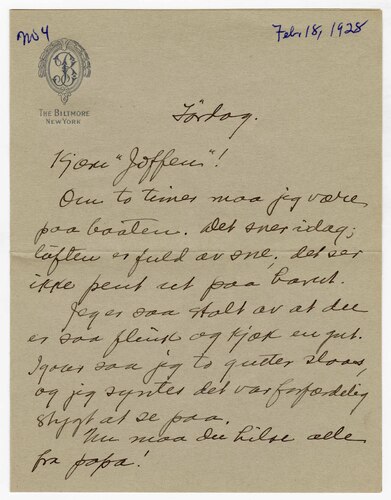 No 4
Feb. 18, 1928
B
THE BILTMORE
NEW YORK
Lørdag.
Kjære "Joffen"!
Om to timer maa jeg være
paa baaten. Det sner idag;
luften er fuld av sne, det ser
ikke pent ut paa
Jeg er saa stolt av at du
er saa flink og kjæk en gut.
Igaar saa jeg to gutter slaass,
og jeg syntes det var forfærdelig
stygt at se paa.
Nu maa du hilse alle
fra papa!